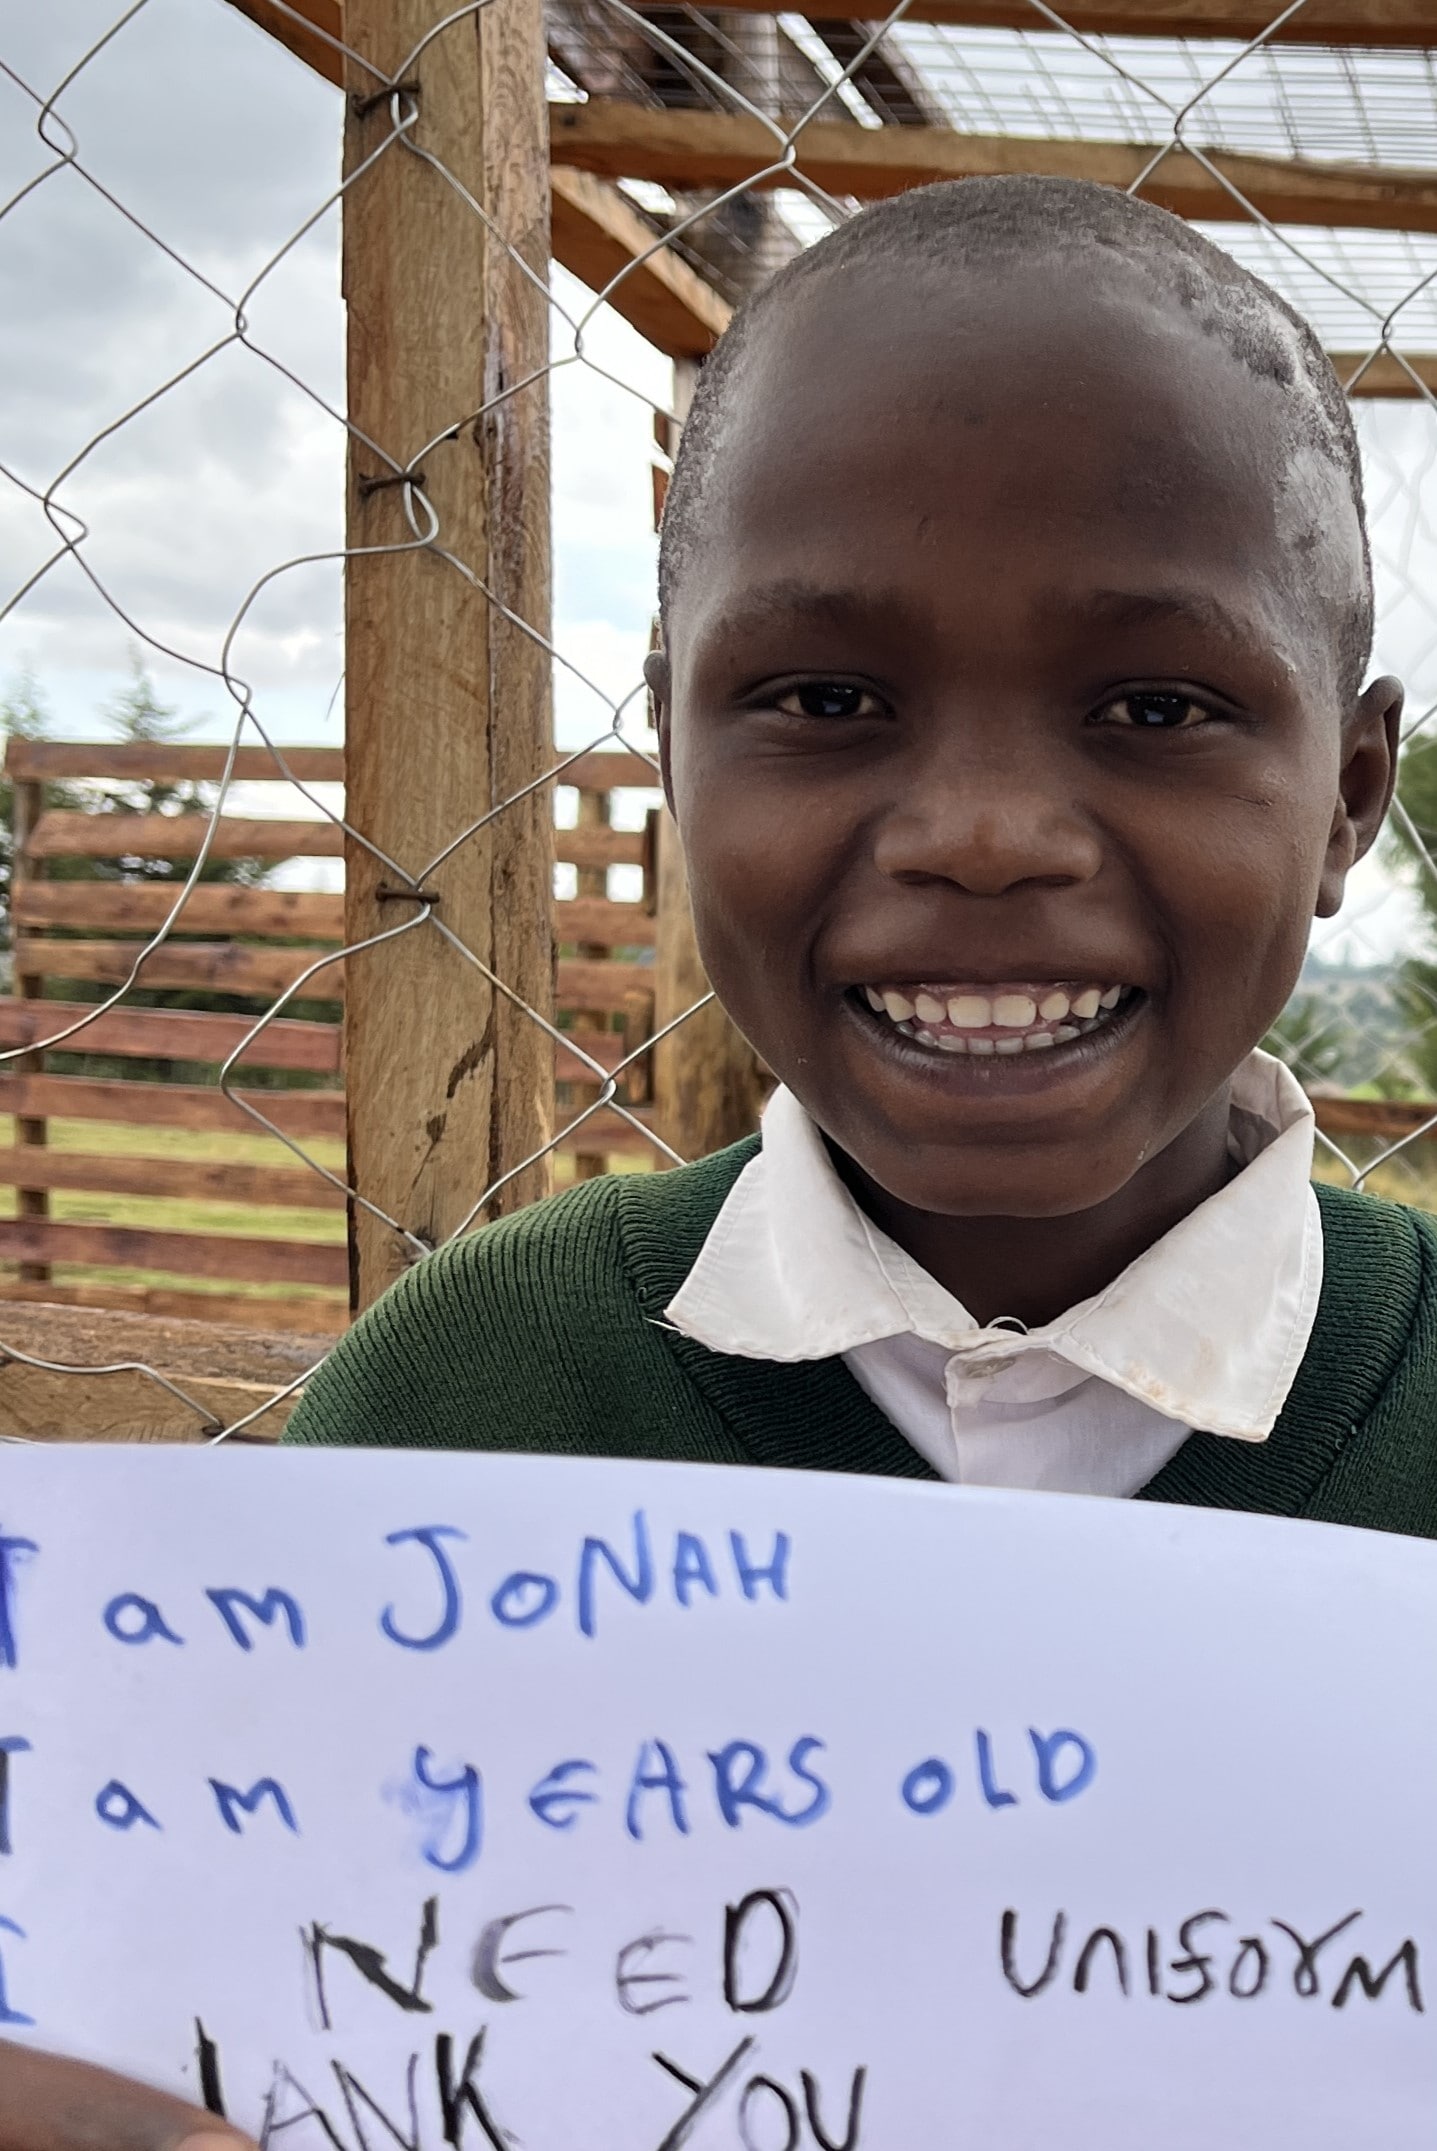 I am JoNAH
I am yEARS oLD
I NEED UNIFORM
IANK YOU